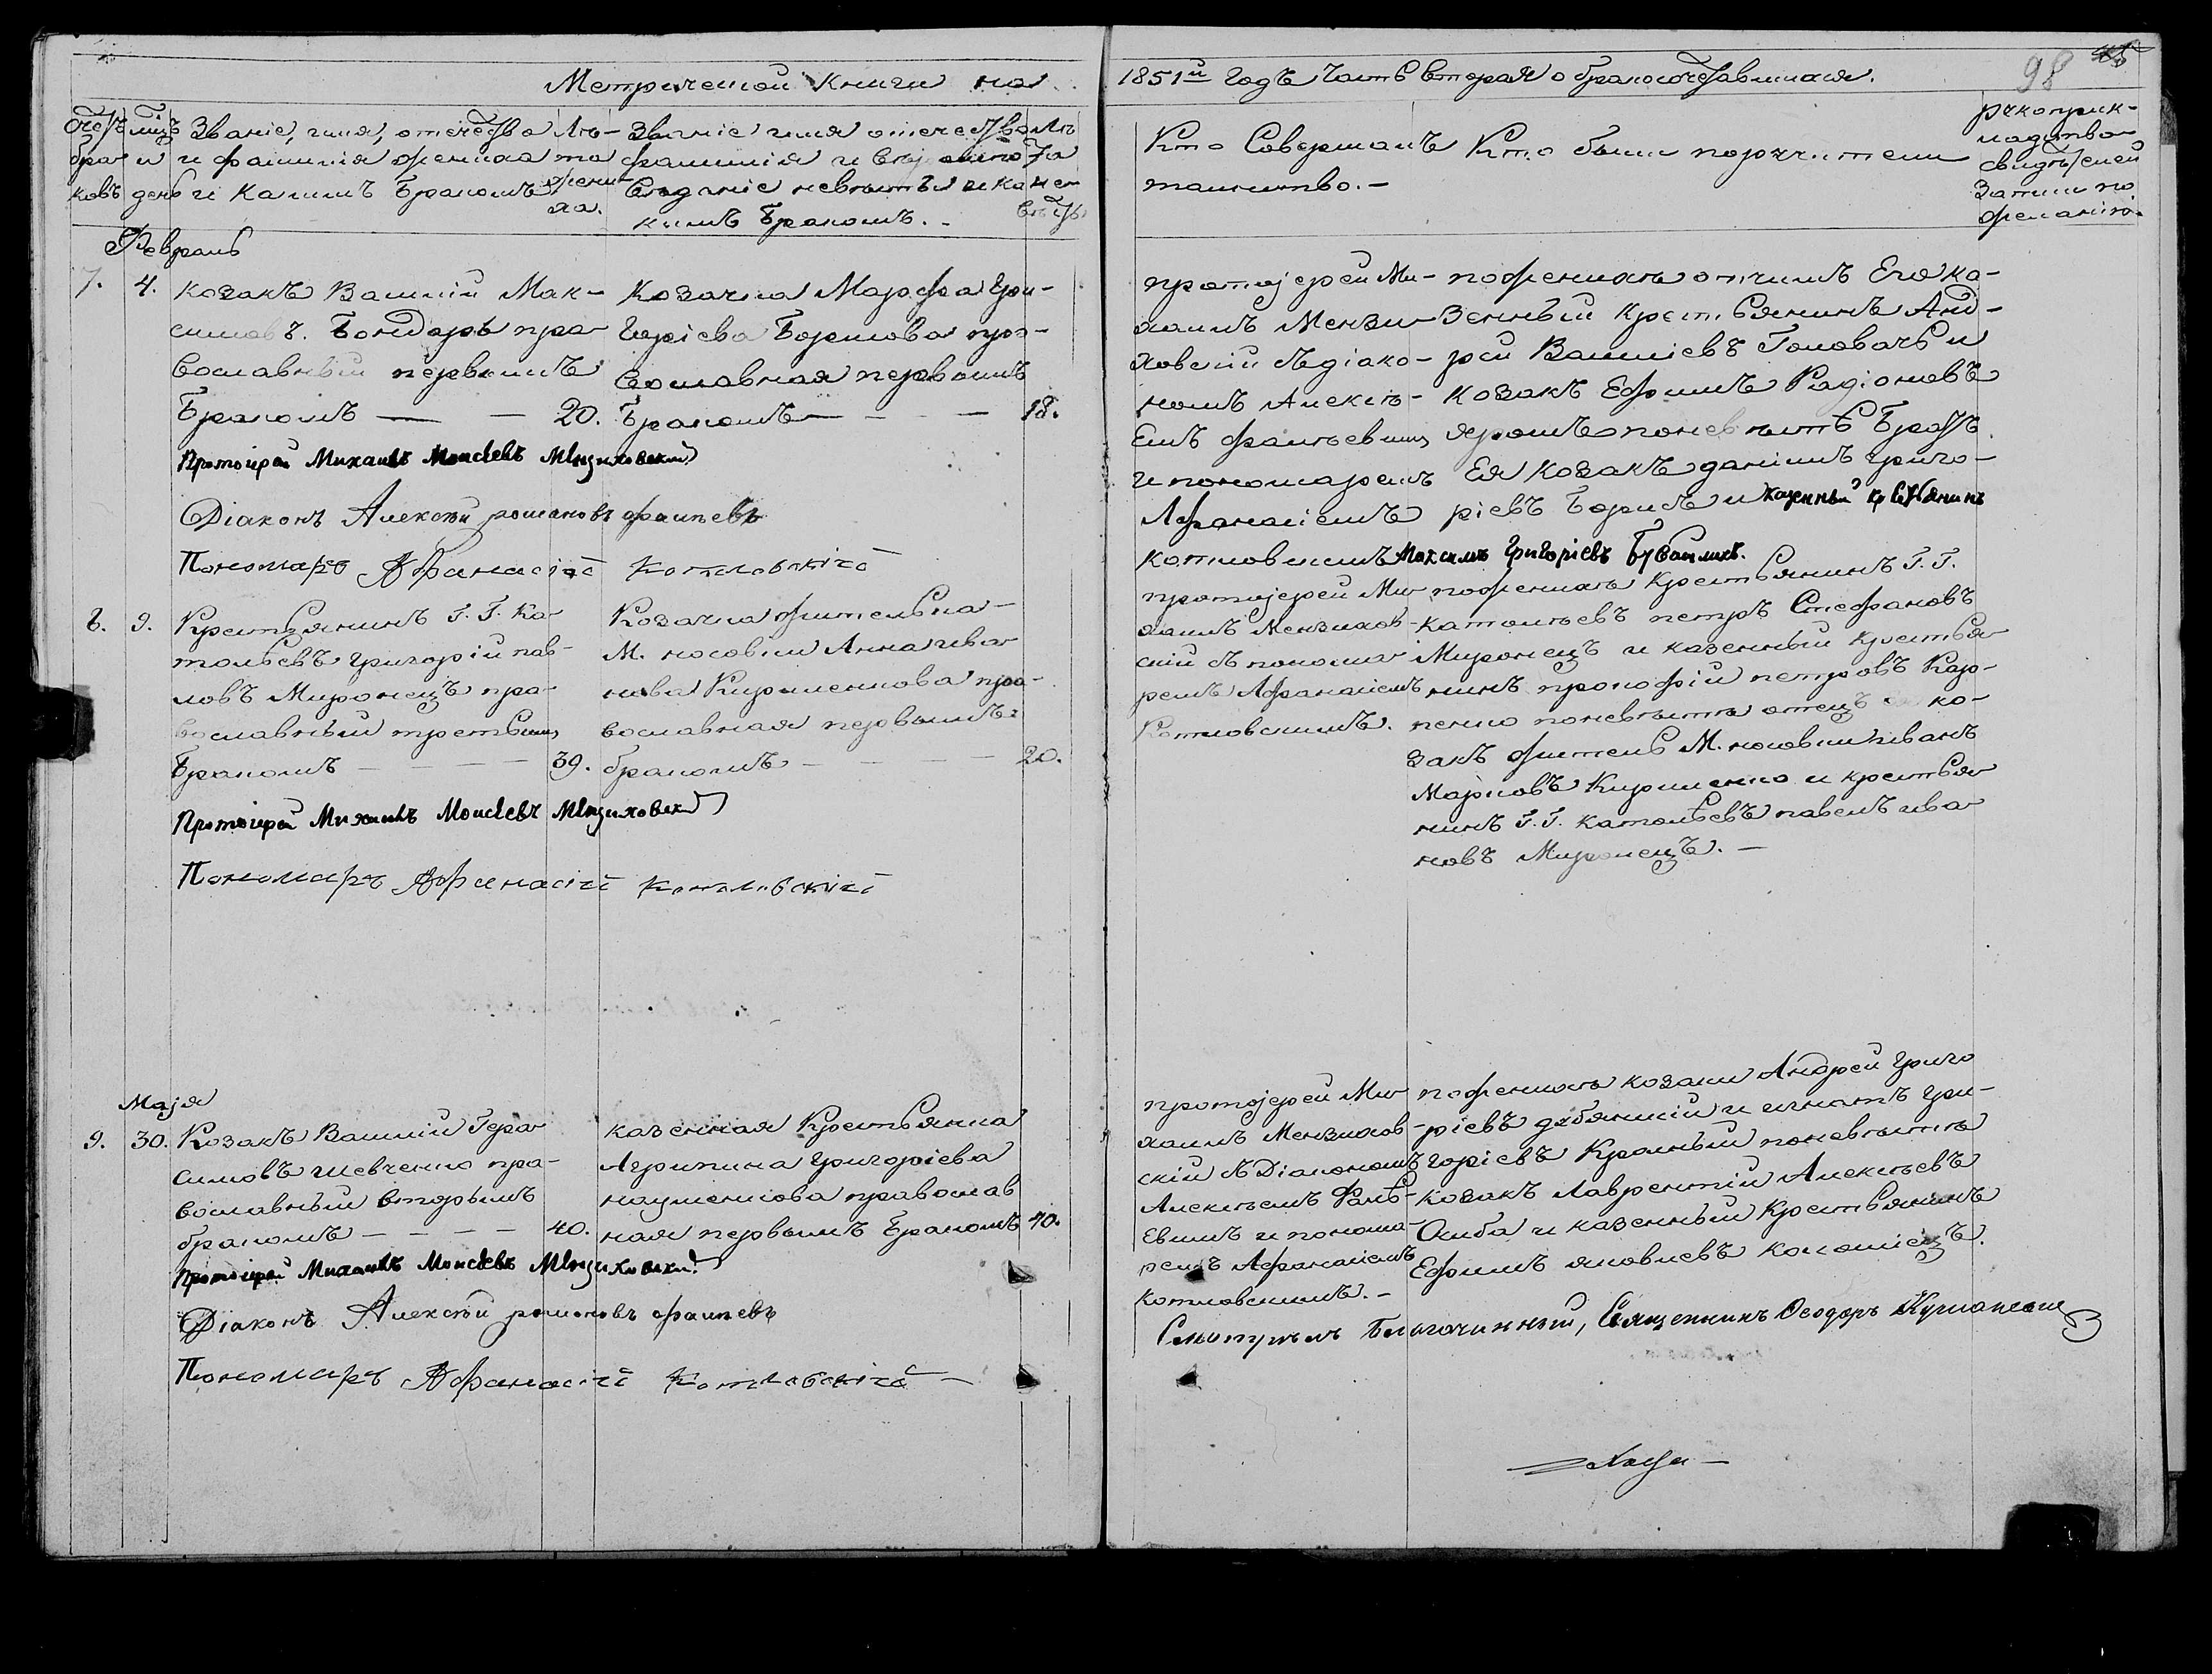 Метрической книги на 1851й годъ часть вторая о бракосочетавшихся.
98
Звание, имя, отечество
и фамилія жениха
и какимъ бракомъ
Лѣ-
та
жени-
ха.
Званіе имя отечество
фамилія
невѣсты и ка-
кимъ бракомъ.
Лѣ
та
не-
вѣсты
Кто Совершалъ
таинство.
Кто были поручители
рукоприк-
ладство
свидѣтелей
записи по
желанію.
Февраль
7. 4.
козакъ Василій Мак-
симовъ Бондарь пра-
вославный первымъ
бракомъ — — 20.
Козачка Марфа Гри-
горіева Борисова пра-
вославная первымъ
бракомъ — — 18.
протоіерей Ми-
хаилъ Мензи-
ховскій съ діако-
номъ Алексѣ-
емъ Фалѣевимъ
и пономаремъ
Афанасіемъ
котловскимъ
по женихѣ отчимъ Его ка-
зенный крестьянинъ Анд-
рей Василіевъ Головачь и
козакъ Ефимъ Радіоновъ
по невѣстѣ братъ
Ея козакъ даніилъ григо-
ріевъ Борисъ и казенный крестьянинъ
Максимъ Григоріевъ
Протоіерей Михаилъ Моисеевъ Мензиховскій
Діаконъ Алексѣй романовъ фалѣевъ
Пономарь Афанасій Котловскій
8. 9.
Крестьянинъ Г. Г. Ка-
тольевъ григорій пав-
ловъ Миронецъ пра-
вославный третьимъ
бракомъ — — — 39.
Козачка жителька
М. носовки Анна ива-
нова Кириченкова пра-
вославная первымъ
бракомъ — — — 20.
протоіерей Ми-
хаилъ Мензихов-
скій съ понома-
ремъ Афанасіемъ
Котловскимъ.
по женихѣ Крестьянинъ Г. Г.
катольевъ петръ Стефановъ
Миронецъ и казенный крестья-
нинъ прокофій петровъ Кар-
пенко по невѣстѣ отецъ ко-
закъ житель М. носовки иванъ
Марковъ Кириченко и крестья-
нинъ Г. Г. катольевъ павелъ ива-
новъ Миронецъ. —
Протоіерей Михаилъ Моисеевъ Мензиховскій
Пономарь Афанасій Котловскій
Маія
9. 30.
Козакъ Василій Гера-
симовъ шевченко пра-
вославный вторымъ
бракомъ — — — 40.
казенная Крестьянка
Агрипина григоріева
науменкова православ
ная первымъ бракомъ 40.
протоіерей Ми-
хаилъ Мензихов-
скій съ Діакономъ
Алексѣемъ Фалѣ-
евимъ и понома-
ремъ Афанасіемъ
котловскимъ. —
по женихѣ козаки Андрей григо
ріевъ дубянскій и игнатъ гри-
горіевъ Красный по невѣстѣ
козакъ лаврентій Алексѣевъ
и казенный Крестьянинъ
Ефимъ яковлевъ коломіецъ.
Протоіерей Михаилъ Моисеевъ Мензиховскій
Діаконъ Алексѣй романовъ фалѣевъ
Пономарь Афанасій Котловскій
Смотрѣлъ Благочинный, Священникъ Ѳеодоръ